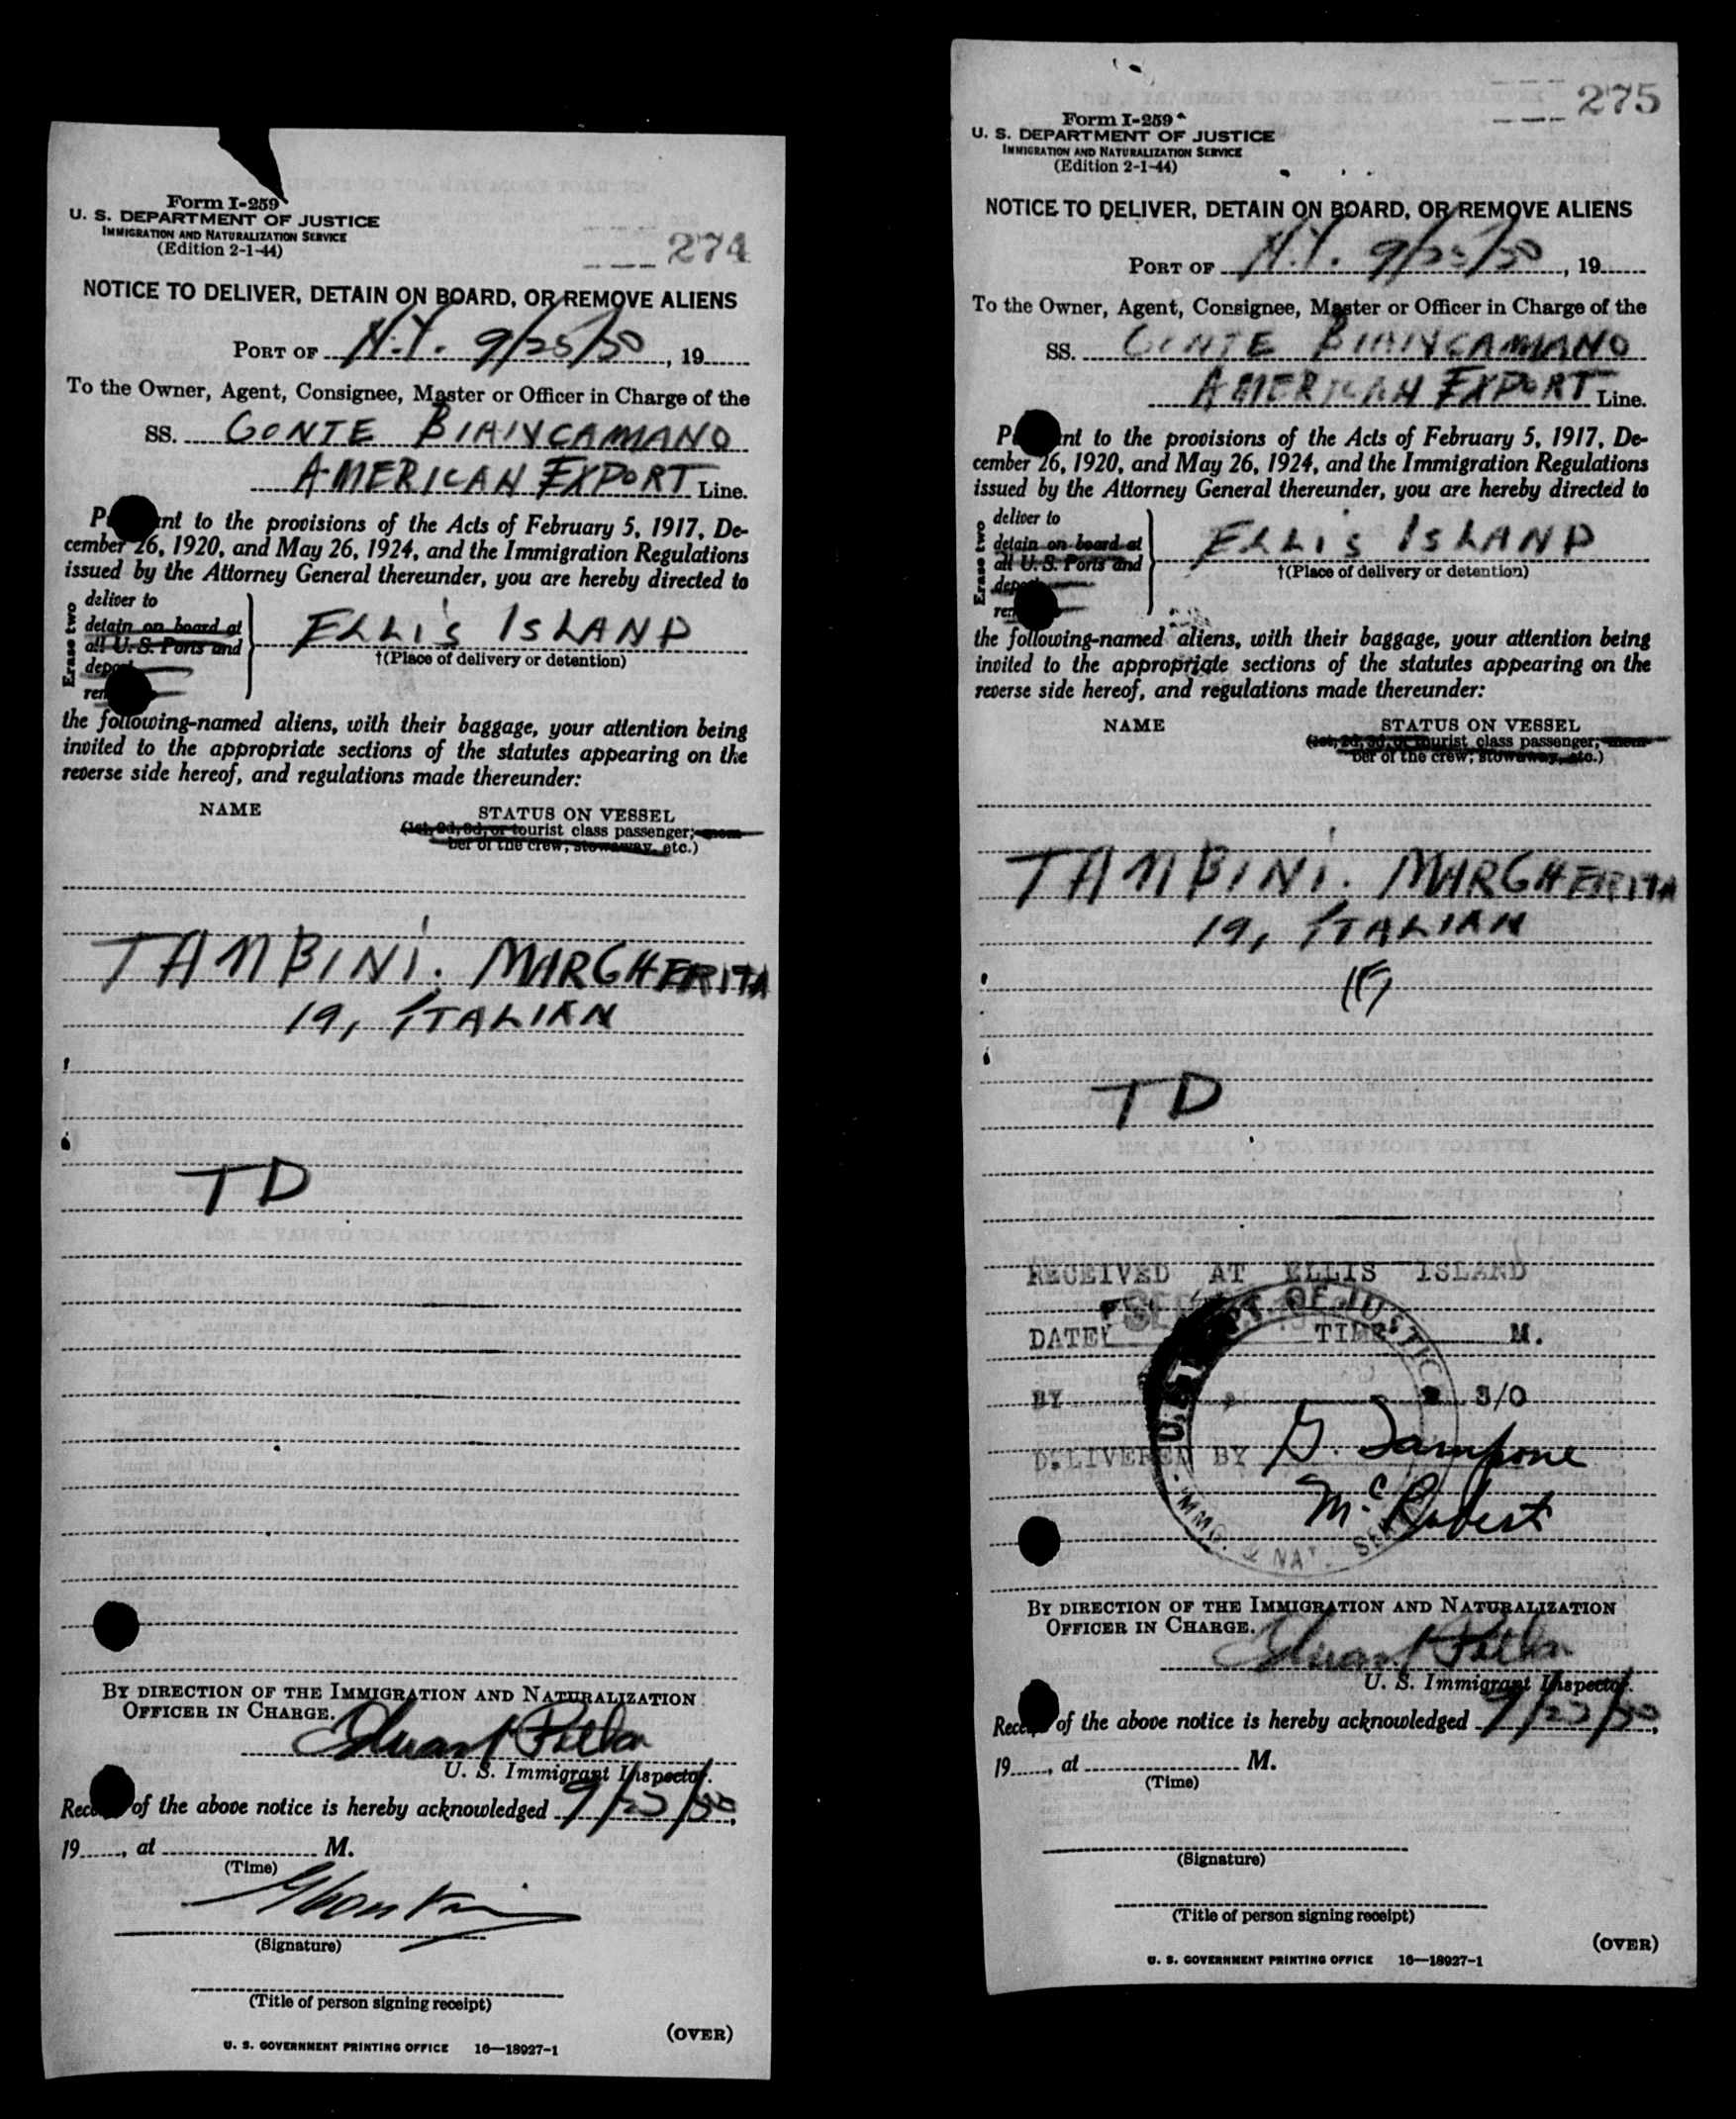 Form I-259
U. S. DEPARTMENT OF JUSTICE
IMMIGRATION AND NATURALIZATION SERVICE
(Edition 2-1-44)
274
NOTICE TO DELIVER, DETAIN ON BOARD, OR REMOVE ALIENS
PORT OF N.Y. 9/25/50, 19
To the Owner, Agent, Consignee, Master or Officer in Charge of the
SS. CONTE BIANCAMANO
AMERICAN EXPORT Line.
P nt to the provisions of the Acts of February 5, 1917, De-
cember 26, 1920, and May 26, 1924, and the Immigration Regulations
issued by the Attorney General thereunder, you are hereby directed to
Erase two
deliver to
detain on board at
all U. S. Ports and
depo
rem
ELLIS ISLAND
†(Place of delivery or detention)
the following-named aliens, with their baggage, your attention being
invited to the appropriate sections of the statutes appearing on the
reverse side hereof, and regulations made thereunder:
NAME STATUS ON VESSEL
(1st, 2d, 3d, or tourist class passenger; mem-
ber of the crew, stowaway, etc.)
TAMBINI. MARGHERITA
19, ITALIAN
TD
BY DIRECTION OF THE IMMIGRATION AND NATURALIZATION
OFFICER IN CHARGE.
U. S. Immigrant Inspector.
Rece of the above notice is hereby acknowledged 9/25/50,
19, at M.
(Time)
(Signature)
(Title of person signing receipt)
(OVER)
U. S. GOVERNMENT PRINTING OFFICE 16—18927-1
275
Form I-259
U. S. DEPARTMENT OF JUSTICE
IMMIGRATION AND NATURALIZATION SERVICE
(Edition 2-1-44)
NOTICE TO DELIVER, DETAIN ON BOARD, OR REMOVE ALIENS
PORT OF N.Y. 9/25/50, 19
To the Owner, Agent, Consignee, Master or Officer in Charge of the
SS. CONTE BIANCAMANO
AMERICAN EXPORT Line.
P nt to the provisions of the Acts of February 5, 1917, De-
cember 26, 1920, and May 26, 1924, and the Immigration Regulations
issued by the Attorney General thereunder, you are hereby directed to
Erase two
deliver to
detain on board at
all U. S. Ports and
depo
rem
ELLIS ISLAND
†(Place of delivery or detention)
the following-named aliens, with their baggage, your attention being
invited to the appropriate sections of the statutes appearing on the
reverse side hereof, and regulations made thereunder:
NAME STATUS ON VESSEL
(1st, 2d, 3d, or tourist class passenger; mem-
ber of the crew, stowaway, etc.)
TAMBINI. MARGHERITA
19, ITALIAN
(F)
TD
RECEIVED AT ELLIS ISLAND
DATE TIME M.
BY S/O
DELIVERED BY G. Sampone
McRobert
BY DIRECTION OF THE IMMIGRATION AND NATURALIZATION
OFFICER IN CHARGE.
U. S. Immigrant Inspector.
Rece of the above notice is hereby acknowledged 9/25/50,
19, at M.
(Time)
(Signature)
(Title of person signing receipt)
(OVER)
U. S. GOVERNMENT PRINTING OFFICE 16—18927-1